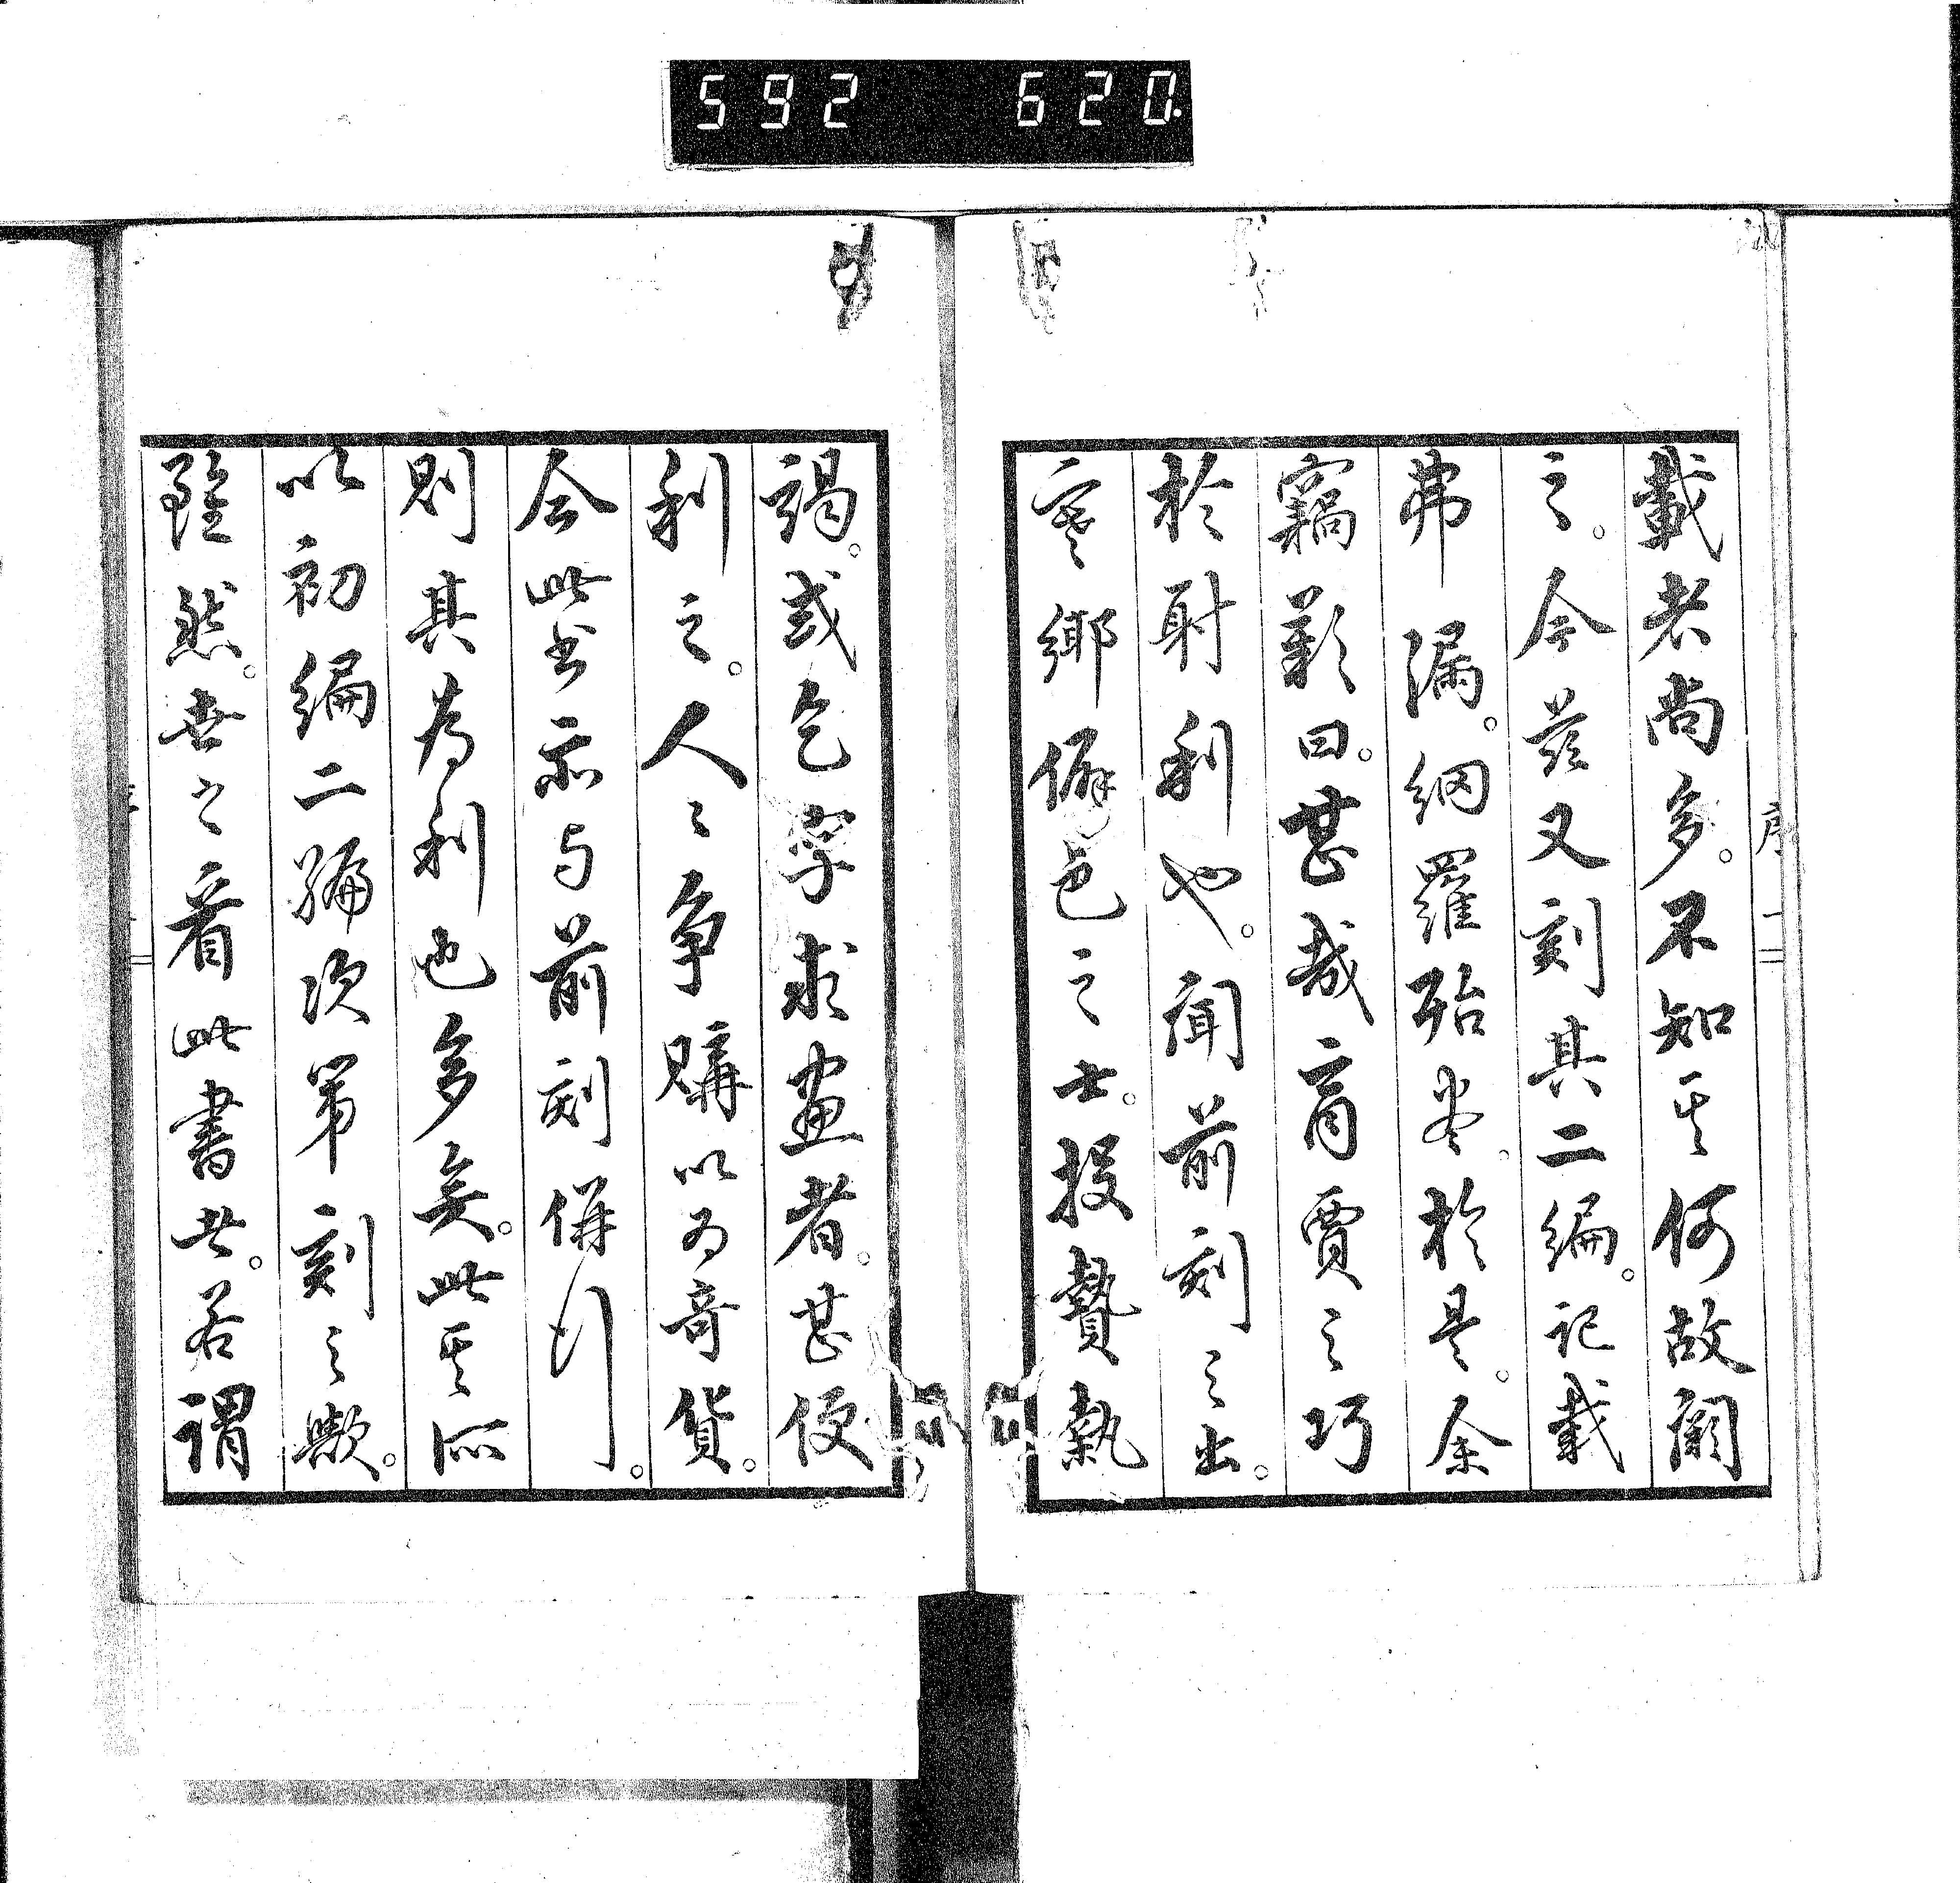 592 620.
序 二
載者尚多。不知其何故闕
之。今茲又刻其二編。記載
弗漏。網羅殆尽。於是。余
竊歎曰。甚哉商賈之巧
於射利也。聞前刻之出。
寒鄉僻邑之士。投贄執
謁。或乞字求画者。甚便
利之。人々争購以為奇貨。
今此書亦与前刻併行。
則其為利也多矣。此其所
以初編二編次第刻之歟。
雖然。世之看此書者。若謂